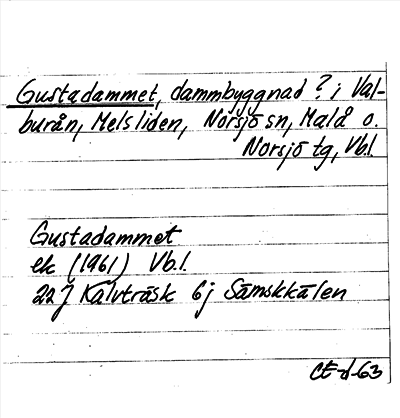 Gustadammet, dammbyggnad? i Val-
burån, Melsliden, Norsjö sn, Malå o.
Norsjö tg, Vb.l.
Gustadammet
ek (1961) Vb.l.
22 J Kalvträsk 6j Sämskkälen